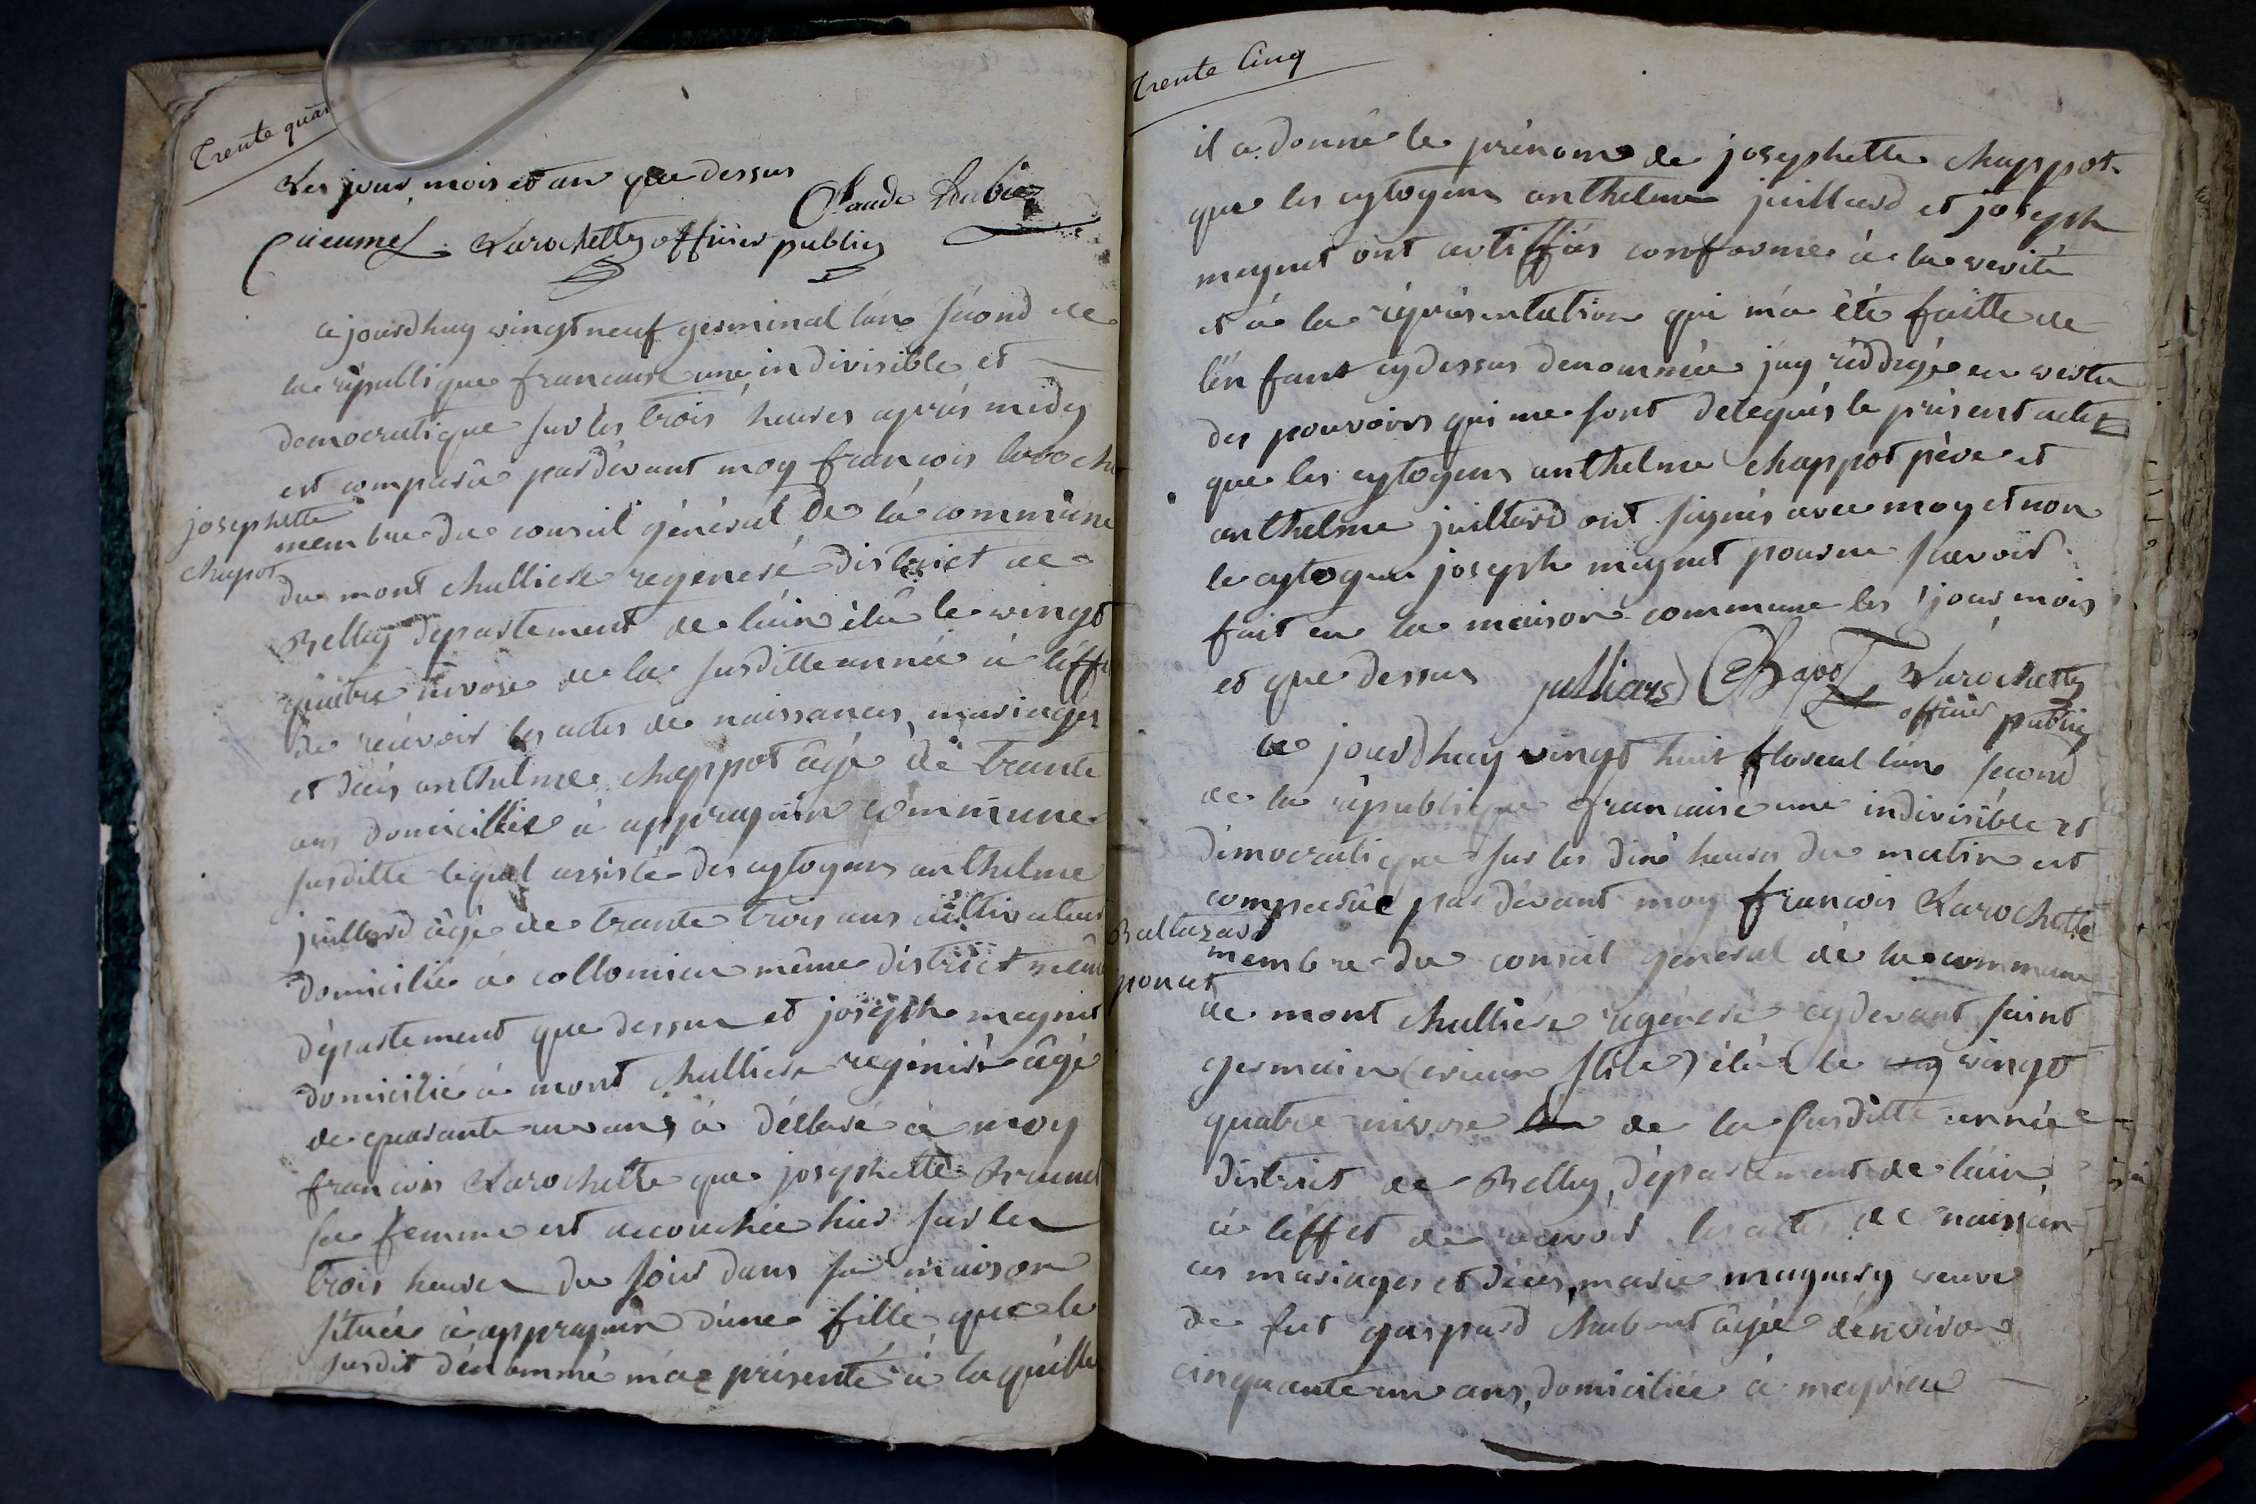 Trente quat
Les jour, mois et an que dessus
Claude
Larochette officier public
ce jourdhuy vingt neuf germinal lan second de
la republique francaise une indivisible et
democratique sur les trois heures après midy
est comparu pardevant moy francois laroche
josephette
chapot
membre du conseil général de la commune
du mont challiere regeneré district de
Belley departement de lain élu le vingt
quatre nivose de la susditte année à leffe
de recevoir les actes de naissances, mariages
et décès anthelme chappot âgé de trante
ans domicillié à appragnin commune
susditte lequel assisté des cytoyens anthelme
juillard âgé de trante trois ans cultivateur
domicilié à collomieu même district même
département que dessus et joseph meynet
domicilié à mont challiere regénéré âgé
de quarante un ans à déclaré à moy
francois Larochette que josephette Brunet
sa femme est accouchée hier sur les
trois heures du soir dans sa maison
située à appragnin dune fille que le
susdit dénommé ma présenté à laquelle
Trente Cinq
il a donné le prénom de josephette chappot
que les cytoyens anthelme juillard et joseph
meynet ont certiffiés conforme à la verité
et à la représentation qui m'a été faitte de
lenfant cydessus denommée jay reddigé en vertu
des pouvoirs qui me sont delegués le présent acte
que les cytoyens anthelme chappot père et
anthelme juillard ont signés avec moy et non
le cytoyen joseph meynet pour ne scavoir
fait en la maison commune les jour mois
et que dessus julliard Chapot Larochette
officier public
ce jourdhuy vingt huit floreal lan second
de la république francaise une indivisible et
démocratique sur les dix heures du matin est
comparüe par dévant moy francois Larochette
Baltazard
poncet
membre du conseil général de la commune
de mont challiere régénéré cydevant saint
germain (vieux stile) élu le vingt
quatre nivose de la susditte année
district de Belley, département de lain
à leffet de recevoir les actes de naissan
ces mariages et décès, marie veuve
de fut gaspard âgée dénviron
cinquante un ans, domiciliée à meyrieu